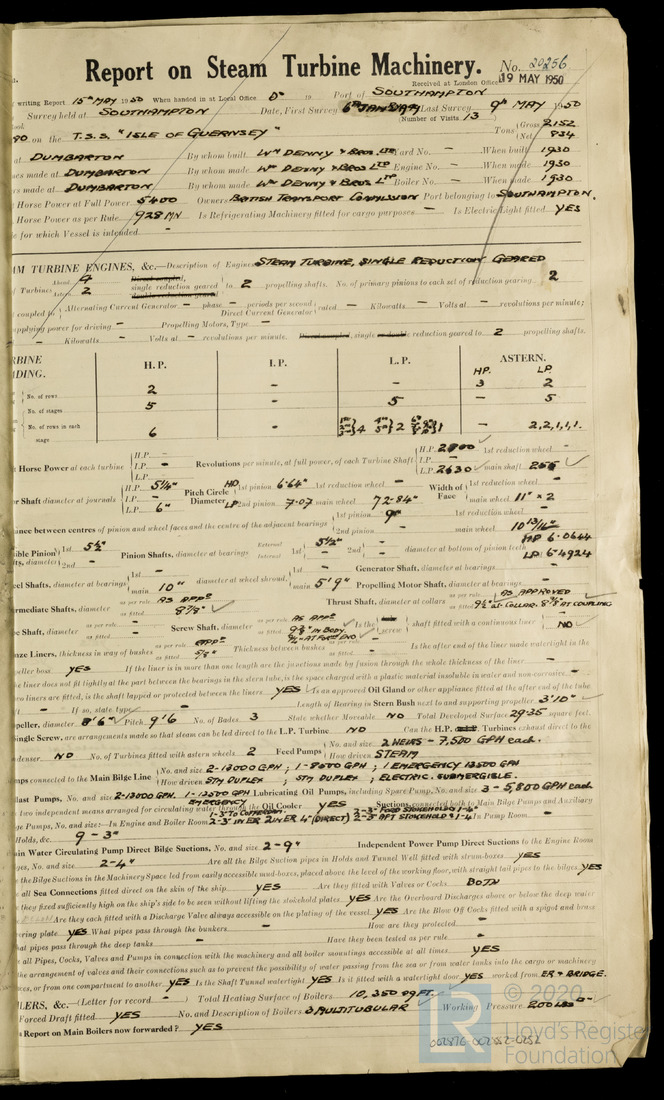 Report on Steam Turbine Machinery. No. 20256
Received at London Office 19 MAY 1950
writing Report 15TH MAY 1950 When handed in at Local Office Do 19 Port of SOUTHAMPTON
Survey held at SOUTHAMPTON Date, First Survey 6TH JAN Last Survey 9TH MAY 1950
(Number of Visits 13
on the T.S.S. "ISLE OF GUERNSEY" Tons {Gross 2152
{Net 834
at DUMBARTON By whom built WM DENNY & BROS LTD Yard No. — When built 1930
es made at DUMBARTON By whom made WM DENNY & BROS LTD Engine No. — When made 1930
rs made at DUMBARTON By whom made WM DENNY & BROS LTD Boiler No. — When made 1930
Horse Power at Full Power 5400 Owners BRITISH TRANSPORT COMMISSION Port belonging to SOUTHAMPTON.
Horse Power as per Rule 928 MN Is Refrigerating Machinery fitted for cargo purposes — Is Electric Light fitted YES
e for which Vessel is intended —
AM TURBINE ENGINES, &c.—Description of Engines STEAM TURBINE, SINGLE REDUCTION GEARED
of Turbines Ahead 4 Direct coupled, single reduction geared to 2 propelling shafts. No. of primary pinions to each set of reduction gearing 2
Astern 2 double reduction geared
coupled to { Alternating Current Generator — phase — periods per second } rated — Kilowatts — Volts at — revolutions per minute;
Direct Current Generator
applying power for driving — Propelling Motors, Type —
— Kilowatts — Volts at — revolutions per minute. Direct coupled, single or double reduction geared to 2 propelling shafts.
RBINE DING. H. P. I. P. L. P. ASTERN.
HP. LP.
No. of rows 2 - - 3 2
No. of stages 5 - 5 - 5
No. of rows in each stage 6 - 4 2 1 - 2,2,1,1,1.
t Horse Power at each turbine {H.P. — Revolutions per minute, at full power, of each Turbine Shaft {H.P. 2800 1st reduction wheel —
{I.P. — {I.P. —
{L.P. — {L.P. 2630 main shaft 256
r Shaft diameter at journals {H.P. 5¼" Pitch Circle Diameter {HP 1st pinion 6·64" 1st reduction wheel — Width of Face {1st reduction wheel —
{I.P. — {LP 2nd pinion 7·07 main wheel 72·84" {main wheel 11" x 2
{L.P. 6"
ance between centres of pinion and wheel faces and the centre of the adjacent bearings {1st pinion 9" 1st reduction wheel —
{2nd pinion — main wheel 10 13/16"
ible Pinion fts, diameter {1st 5½" Pinion Shafts, diameter at bearings External Internal 1st 5½" 2nd — diameter at bottom of pinion teeth HP 6·0644
{2nd — LP 6·4924
eel Shafts, diameter at bearings {1st — main 10" diameter at wheel shroud, {1st — main 5' 9" Generator Shaft, diameter at bearings —
Propelling Motor Shaft, diameter at bearings —
ermediate Shafts, diameter as per rule AS APPD Thrust Shaft, diameter at collars as per rule AS APPROVED
as fitted 8⅞" as fitted 9½" at COLLAR. AT COUPLING
e Shaft, diameter as per rule — Screw Shaft, diameter as per rule AS APPD Is the screw shaft fitted with a continuous liner NO
as fitted — as fitted IN BODY. AT FORD END
nze Liners, thickness in way of bushes as per rule APPD Thickness between bushes as per rule — Is the after end of the liner made watertight in the
as fitted 5/8" as fitted —
peller boss YES If the liner is in more than one length are the junctions made by fusion through the whole thickness of the liner —
e liner does not fit tightly at the part between the bearings in the stern tube, is the space charged with a plastic material insoluble in water and non-corrosive —
wo liners are fitted, is the shaft lapped or protected between the liners YES Is an approved Oil Gland or other appliance fitted at the after end of the tube
— If so, state type — Length of Bearing in Stern Bush next to and supporting propeller 3' 10"
peller, diameter 8' 6" Pitch 9' 6 No. of Blades 3 State whether Moveable NO Total Developed Surface 29·35 square feet.
ingle Screw, are arrangements made so that steam can be led direct to the L.P. Turbine NO Can the H.P. Turbines exhaust direct to the
denser NO No. of Turbines fitted with astern wheels 2 Feed Pumps {No. and size 2 WEIRS - 7,500 GPH each.
{How driven STEAM
mps connected to the Main Bilge Line {No. and size 2-13000 GPH ; 1-8000 GPH ; 1 EMERGENCY 13500 GPH
{How driven STM DUPLEX ; STM DUPLEX ; ELECTRIC. SUBMERGIBLE.
llast Pumps, No. and size 2-13000 GPH. 1-13500 GPH EMERGENCY Lubricating Oil Pumps, including Spare Pump, No. and size 3 - 5,800 GPH each
two independent means arranged for circulating water through the Oil Cooler YES Suctions, connected both to Main Bilge Pumps and Auxiliary
ge Pumps, No. and size:—In Engine and Boiler Room 1-3" TO COFFERDAM. 2-3" IN ER 2 IN ER 4" (DIRECT) 2-3" FORD STOKEHOLD 1-4" 2-3" AFT STOKEHOLD 1-4" In Pump Room —
Holds, &c. 9 - 3"
ain Water Circulating Pump Direct Bilge Suctions, No. and size 2-9" Independent Power Pump Direct Suctions to the Engine Room
ges, No. and size 2-4" Are all the Bilge Suction pipes in Holds and Tunnel Well fitted with strum-boxes YES
e the Bilge Suctions in the Machinery Space led from easily accessible mud-boxes, placed above the level of the working floor, with straight tail pipes to the bilges YES
e all Sea Connections fitted direct on the skin of the ship YES Are they fitted with Valves or Cocks BOTH
e they fixed sufficiently high on the ship's side to be seen without lifting the stokehold plates YES Are the Overboard Discharges above or below the deep water
Are they each fitted with a Discharge Valve always accessible on the plating of the vessel YES Are the Blow Off Cocks fitted with a spigot and brass
vering plate YES What pipes pass through the bunkers — How are they protected —
hat pipes pass through the deep tanks — Have they been tested as per rule —
e all Pipes, Cocks, Valves and Pumps in connection with the machinery and all boiler mountings accessible at all times YES
the arrangement of valves and their connections such as to prevent the possibility of water passing from the sea or from water tanks into the cargo or machinery
ces, or from one compartment to another YES Is the Shaft Tunnel watertight YES Is it fitted with a watertight door YES worked from ER & BRIDGE.
LERS, &c.—(Letter for record — ) Total Heating Surface of Boilers 10,350 sq FT.
Forced Draft fitted YES No. and Description of Boilers 3 MULTITUBULAR Working Pressure 200 LBS
Report on Main Boilers now forwarded? YES
© 2020
Lloyd's Register
Foundation
002876-002882-0252